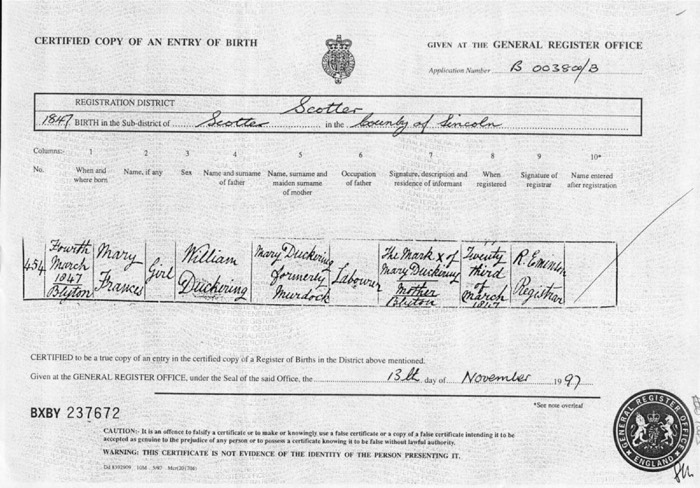 CERTIFIED COPY OF AN ENTRY OF BIRTH
GIVEN AT THE GENERAL REGISTER OFFICE
Application Number
REGISTRATION DISTRICT Scotter
1847 BIRTH in the Sub-district of Scotter in the County of Lincoln
Columns:- 1 2 3 4 5 6 7 8 9 10*
No. When and where born Name, if any Sex Name and surname of father Name, surname and maiden surname of mother Occupation of father Signature, description and residence of informant When registered Signature of registrar Name entered after registration
454 Fourth March 1847 Blyton Mary Frances Girl William Duckering Mary Duckering formerly Murdock Labourer The Mark x of Mary Duckering Mother Blyton Twenty third of March 1847 Registrar
CERTIFIED to be a true copy of an entry in the certified copy of a Register of Births in the District above mentioned.
Given at the GENERAL REGISTER OFFICE, under the Seal of the said Office, the 13th day of November 1997
*See note overleaf
BXBY 237672
CAUTION:- It is an offence to falsify a certificate or to make or knowingly use a false certificate or a copy of a false certificate intending it to be
accepted as genuine to the prejudice of any person or to possess a certificate knowing it to be false without lawful authority.
WARNING: THIS CERTIFICATE IS NOT EVIDENCE OF THE IDENTITY OF THE PERSON PRESENTING IT.
GENERAL REGISTER OFFICE ENGLAND